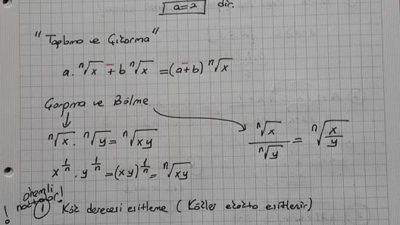 a=2 dir.
"Toplama ve Çıkarma"
a. ⁿ√x ∓ b ⁿ√x = (a∓b) ⁿ√x
Çarpma ve Bölme
ⁿ√x . ⁿ√y = ⁿ√xy
ⁿ√x / ⁿ√y = ⁿ√(x/y)
x^(1/n) . y^(1/n) = (xy)^(1/n) = ⁿ√xy
önemli noktalar!
! ① Kök derecesi eşitleme (Kökler